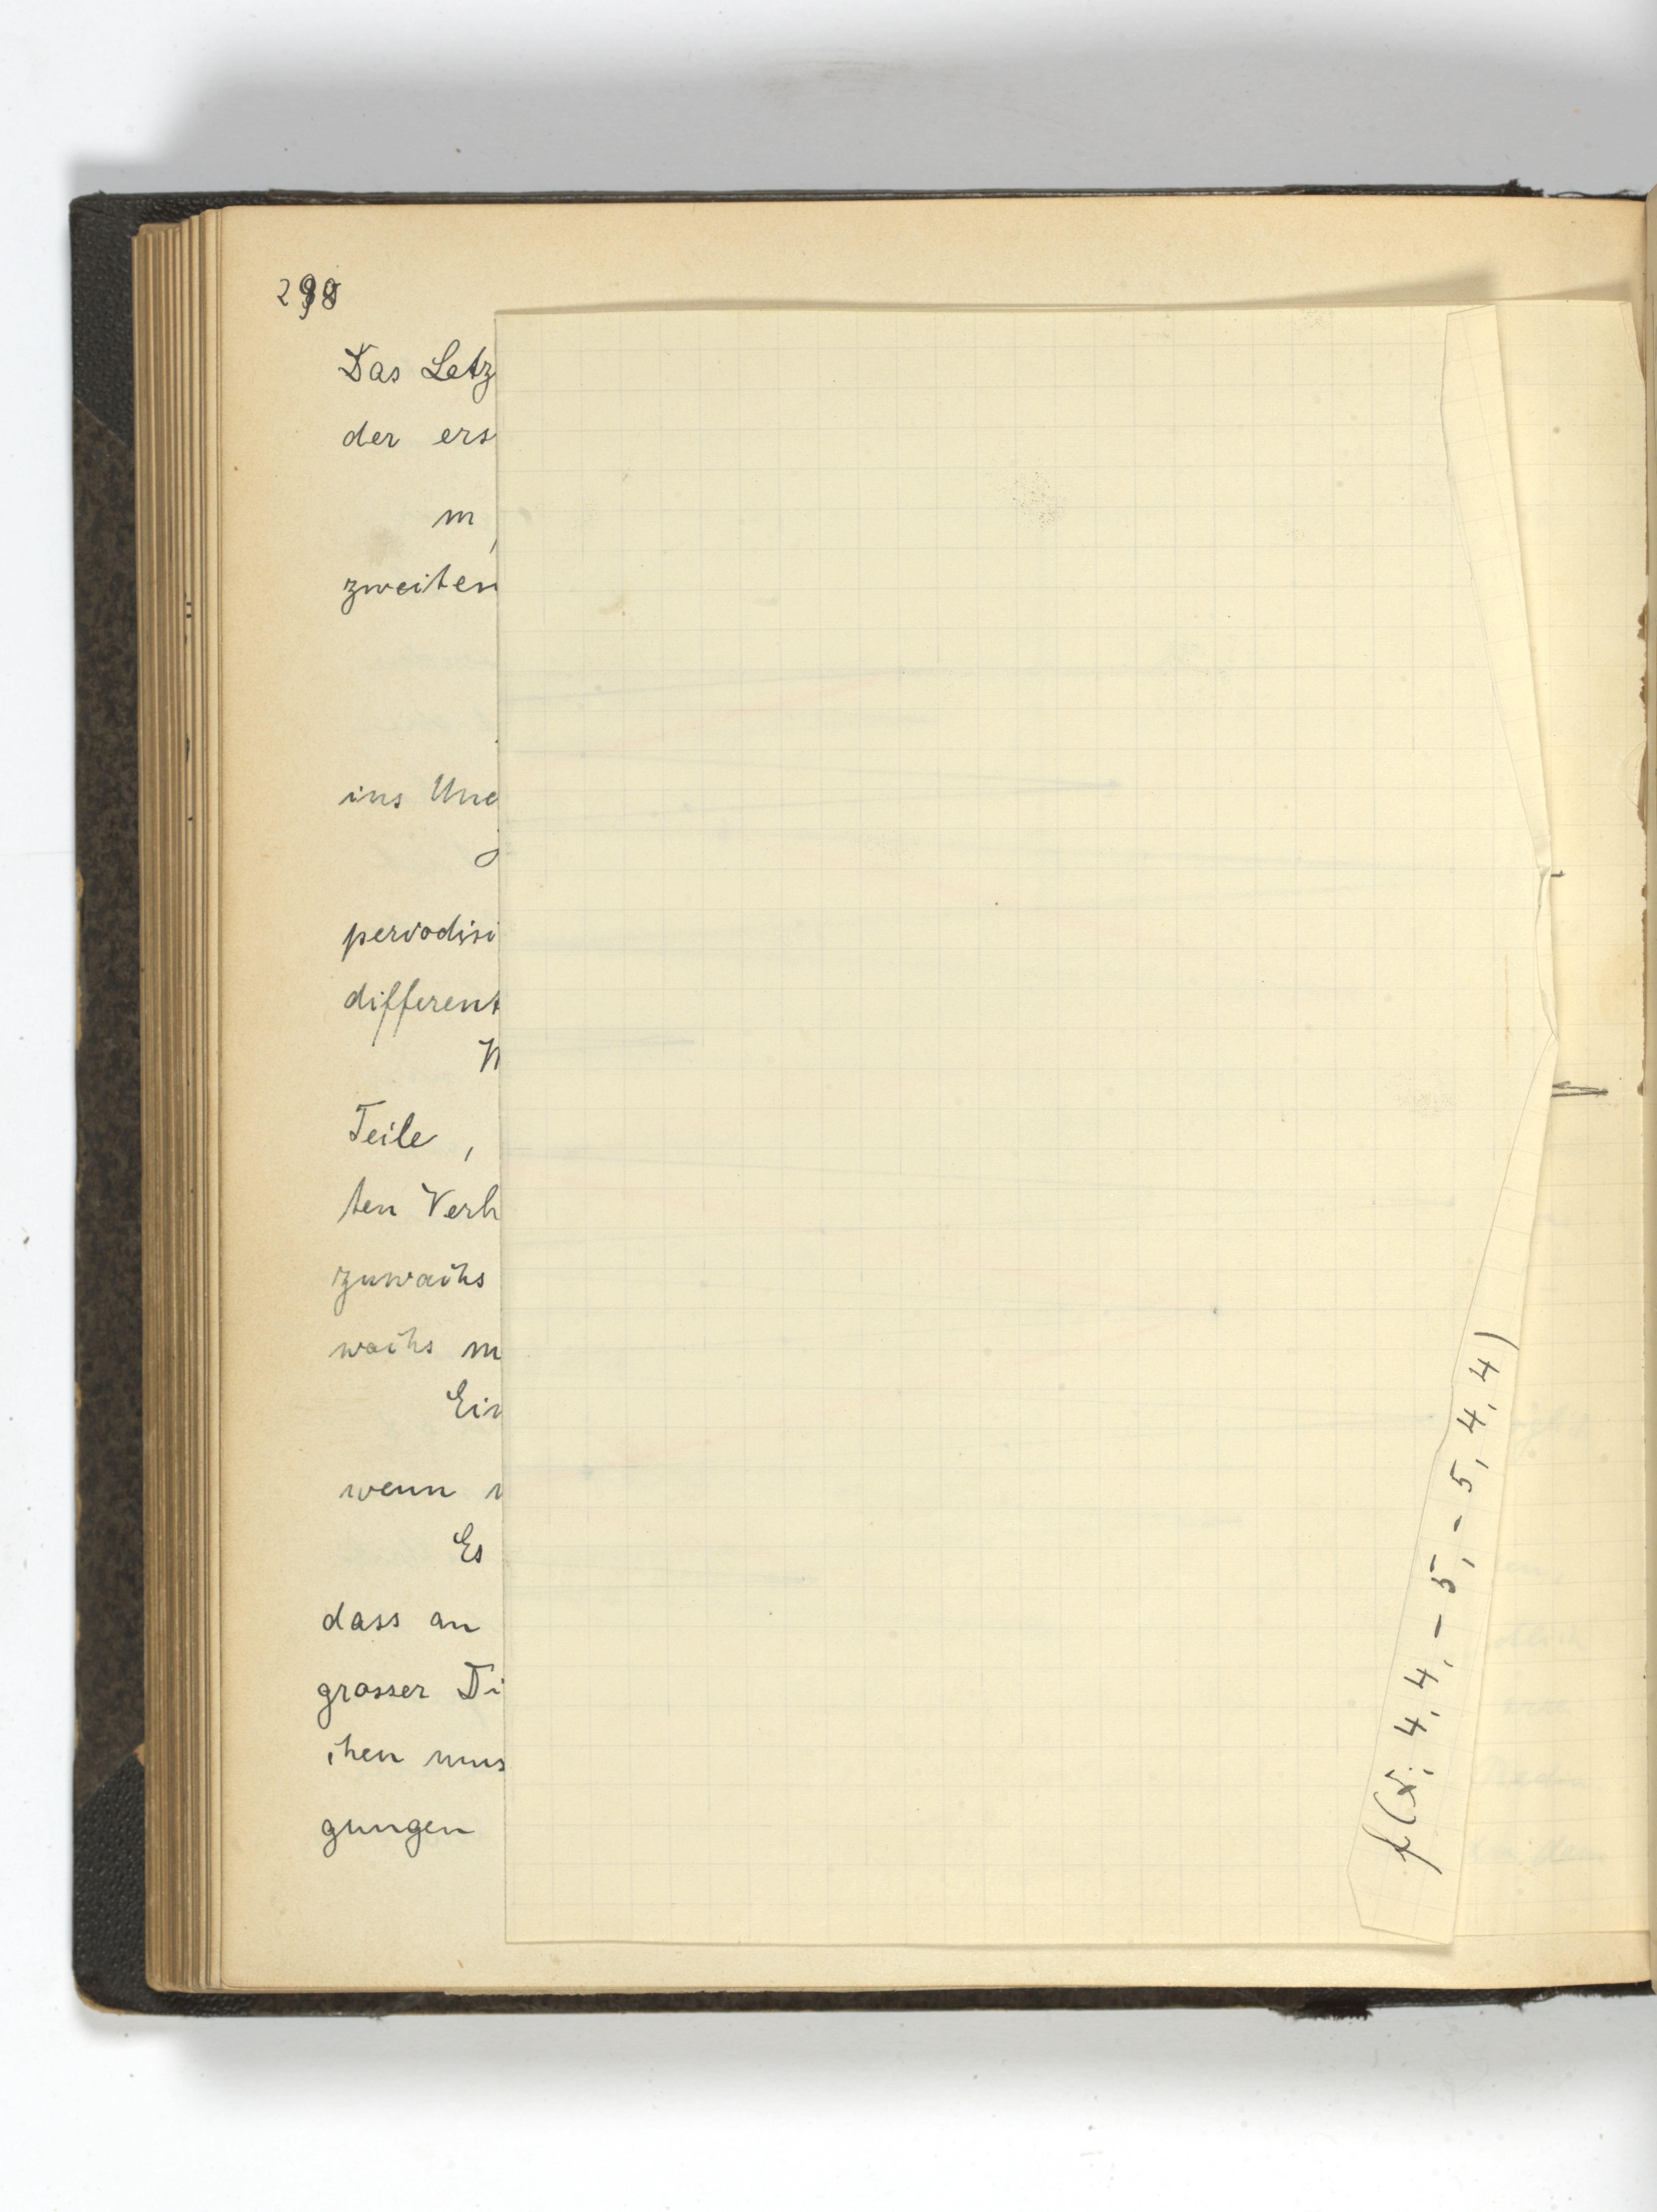 298
Das Letz
der ers
m,
zweiten
ins Une
periodisi
different
N
Teile,
ten Verh
zuwachs
wachs m
Ein
wenn
Es
dass an
grosser Di
chen mus
gungen
f(x; 4, 4, -5, -5, 4, 4)